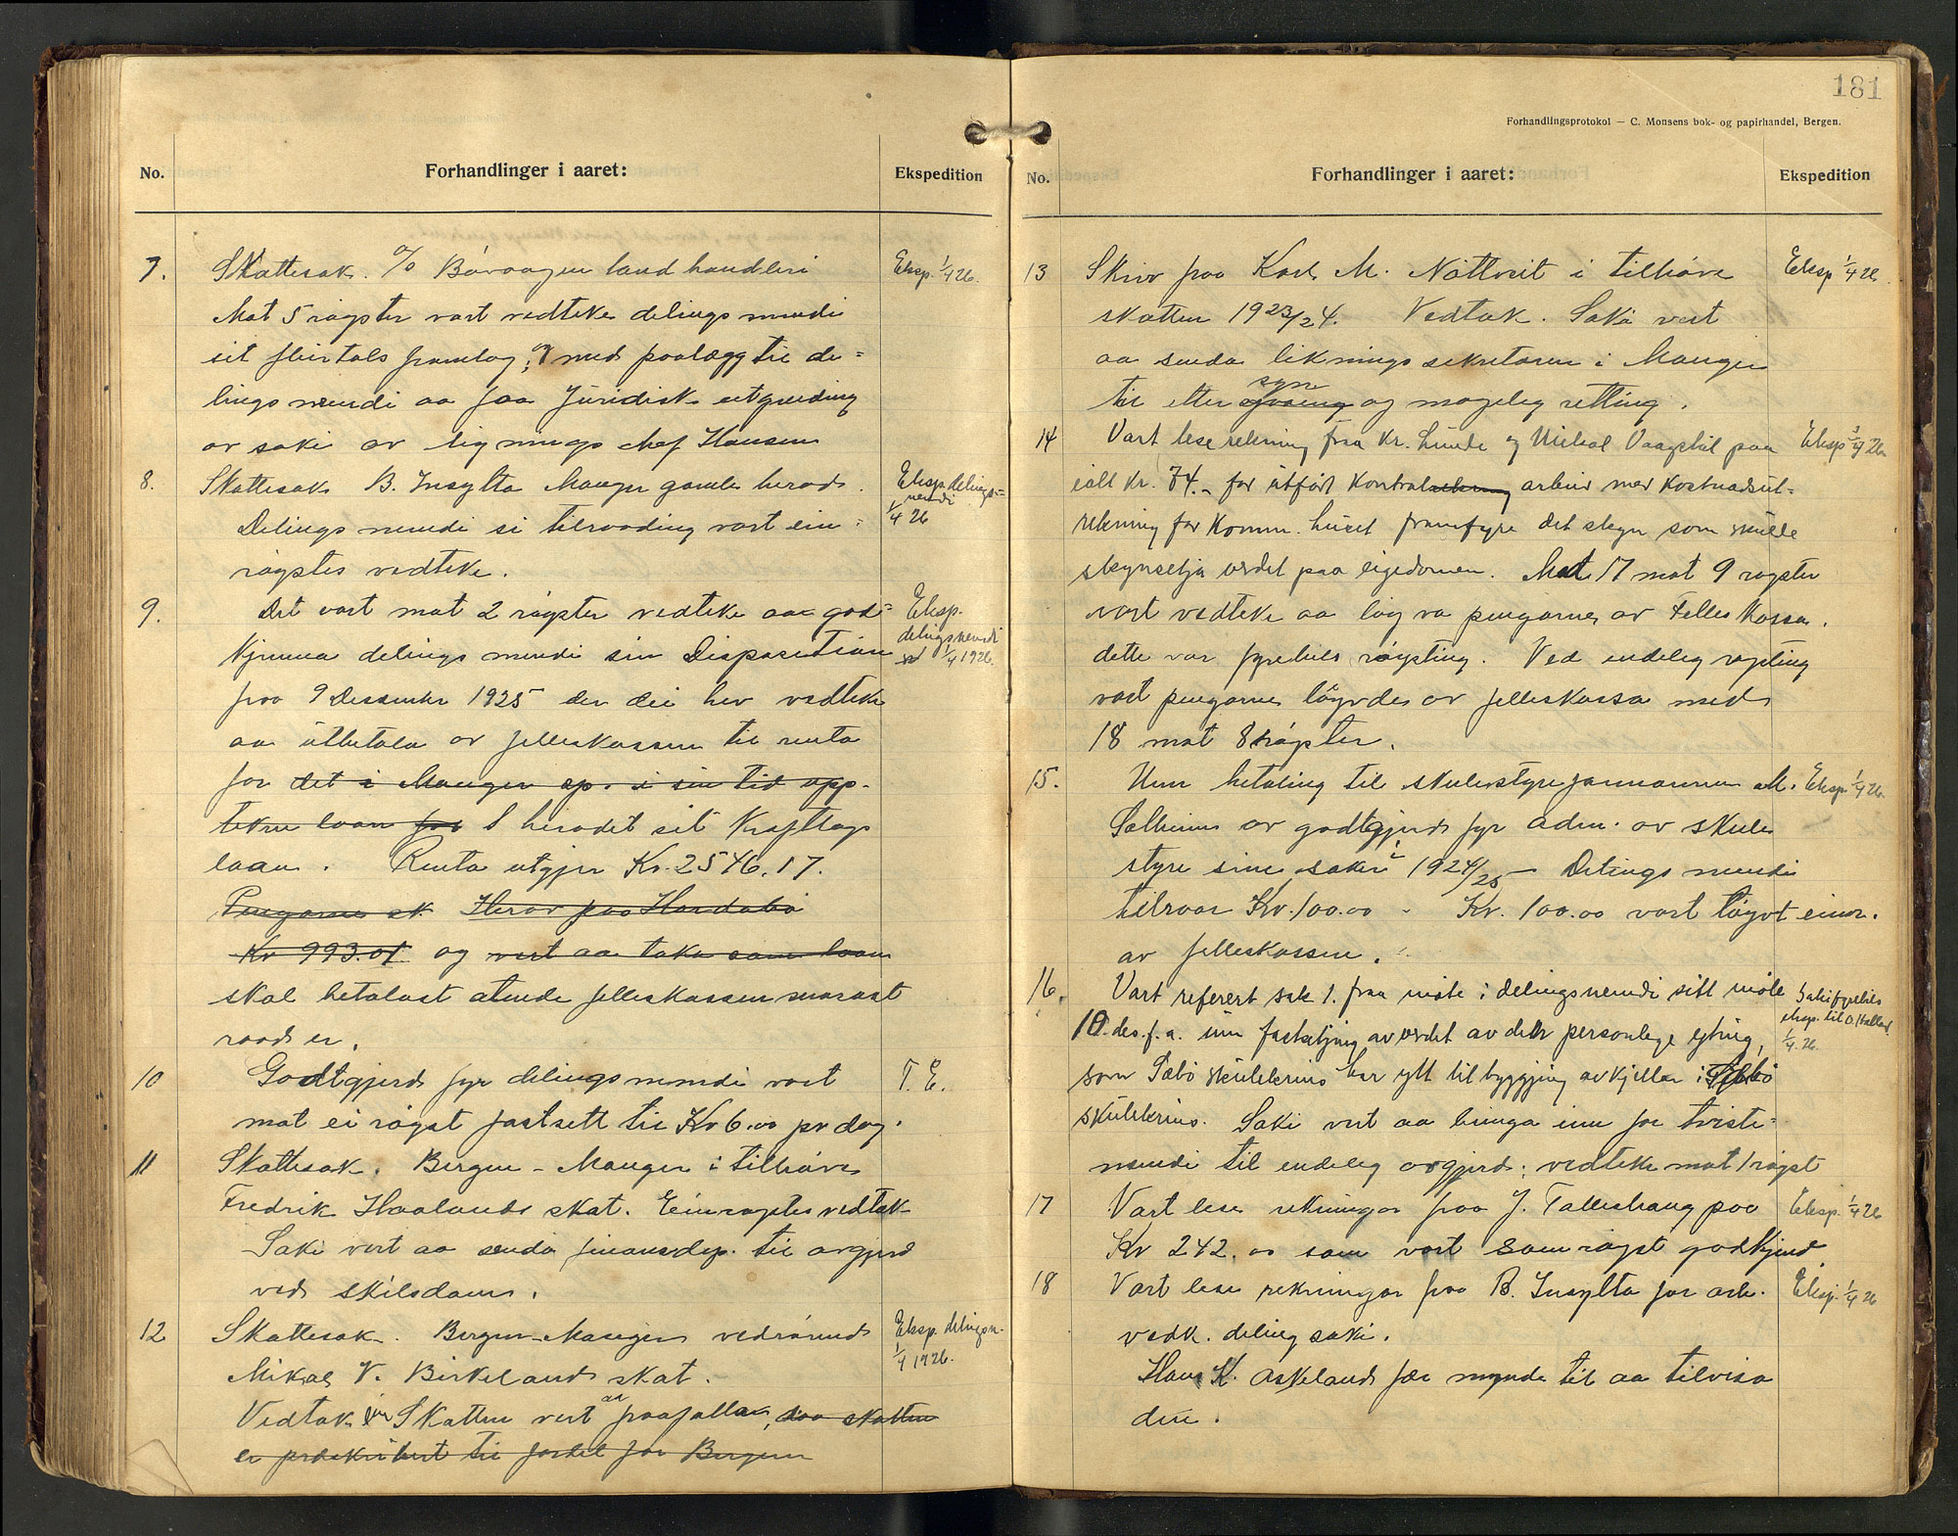 No.
Forhandlinger i aaret:
Ekspedition
7.
Skattesak. A/S Bövaagen landhandleri
Eksp. 1/4 26.
Mot 5 röyster vart vedteke delingsnemdi
sit fleirtals framlag, og med paalegg til de-
lingsnemdi aa faa Juridisk utgreiding
av saki av ligningschef Hansen
8.
Skattesak B. Insylta Manger gamle herad.
Eksp. delings-
nemdi
1/4 26
Delingsnemdi si tilraading vart ein-
röystes vedteke.
9.
Det vart mot 2 röyster vedteke aa god-
Eksp.
delingsnemdi
1/4 1926.
kjenna delingsnemdi sin Disposition
fraa 9 Desember 1925 der dei hev vedteke
aa utbetala av felleskassen til renta
for det i Manger sp. i sin tid opp-
tekne laan for 8 heradet sit Kraftlags
laan. Renta utgjer Kr. 2546.17.
Pengarne sk Herav paa Hordabö
Kr 993.01 og vert aa taka som laan
skal betalast attende felleskassen snarast
raad er.
10
Godtgjerd fyr delingsnemdi vart
T. E.
mot ei röyst fastsett til Kr 6.00 pr dag.
11
Skattesak. Bergen - Manger i tilhöve
Fredrik Haalands skat. Einröystes vedtak
Saki vert aa senda finansdep. til avgjerd
ved skilsdom.
12
Skattesak. Bergen-Manger vedrörende
Eksp. delingsn.
1/4 1926.
Mikal V. Birkelands skat.
Vedtak Skatten vert aa fraafalla, daa skatten
er preskribert til fordel for Bergen
181
Forhandlingsprotokol — C. Monsens bok- og papirhandel, Bergen.
No.
Forhandlinger i aaret:
Ekspedition
13
Skriv fraa Karl M. Nöttveit i tilhöve
Eksp 1/4 26
skatten 1923/24. Vedtak. Saki vert
aa senda likningssekretæren i Manger
til etter syn og mogeleg retting.
14
Vart lese rekning fraa Kr. Lunde og Mikal Vaagstöl paa
Eksp 3/4 26
ialt kr. 74.- for utfört kontrolrekning arbeid med Kostnadsut-
rekning for Komm. huset framfyre det skyn som skulle
skynsetja verdet paa eigedomen. Mot 17 mot 9 röyster
vart vedteke aa löyva pengarne av Felleskassa.
dette var fyrebils röysting. Ved endeleg röysting
vart pengarne löyvde av felleskassa med
18 mot 8 röyster.
15.
Um betaling til skulestyreformannen M.
Eksp. 1/4 26.
Sælheims av godtgjerd fyr adm. av skule
styre sine saker i 1924/25 — Delingsnemdi
tilraar Kr. 100.00 - Kr. 100.00 vart löyvt einr.
av felleskassen.
16.
Vart referert sak 1. fraa möte i delingsnemdi sitt möte
Saki fyrebils
eksp. til O. Halland
1/4 26.
10. des. f.a. um fastsetjing av verdet av den personlege yting,
som Sæbö skulekrins har ytt til byggjing av kjellar i Sæbö
skulekrins. Saki vert aa bringa inn for tviste-
nemdi til endeleg avgjerd; vedteke mot 1 röyst
17
Vart lese rekningar fraa J. Tallerhaug paa
Eksp. 1/4 26
Kr 242.00 som vart samröyst godkjend
18
Vart lese rekningar fraa B. Insylta for arb.
Eksp. 1/4 26
vedk. deling saki.
Hans K. Askeland fær mynde til aa tilvisa
den.